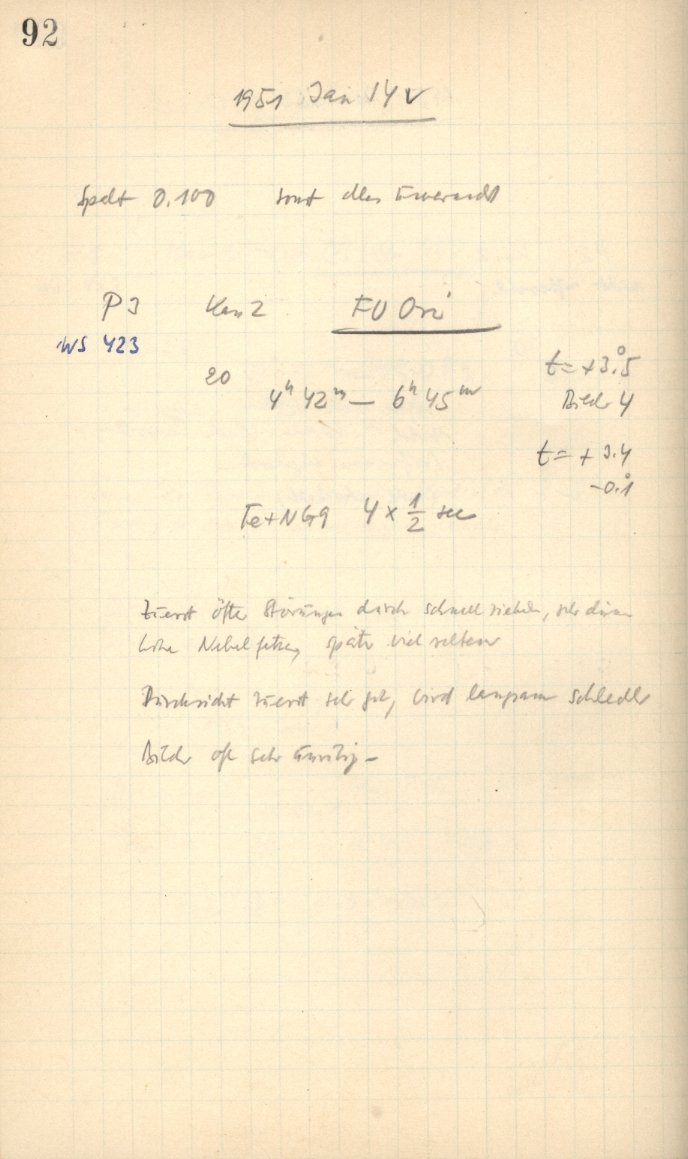 92
1951 Jan 14 v
Spalt 0.100 sonst alles unverändert
P 3 FU Ori
WS 423
20 4h 42m — 6h 45m
t = +3.°5
Bilder 4
t = +3.4
-0.°1
Fe+NG9 4 × 1/2 sec
Zuerst öfter Störungen durch schnell ziehende, sehr dünne
hohe Nebelfetzen, später viel seltener
Durchsicht zuerst sehr gut, wird langsam schlechter
Bilder oft sehr unruhig -